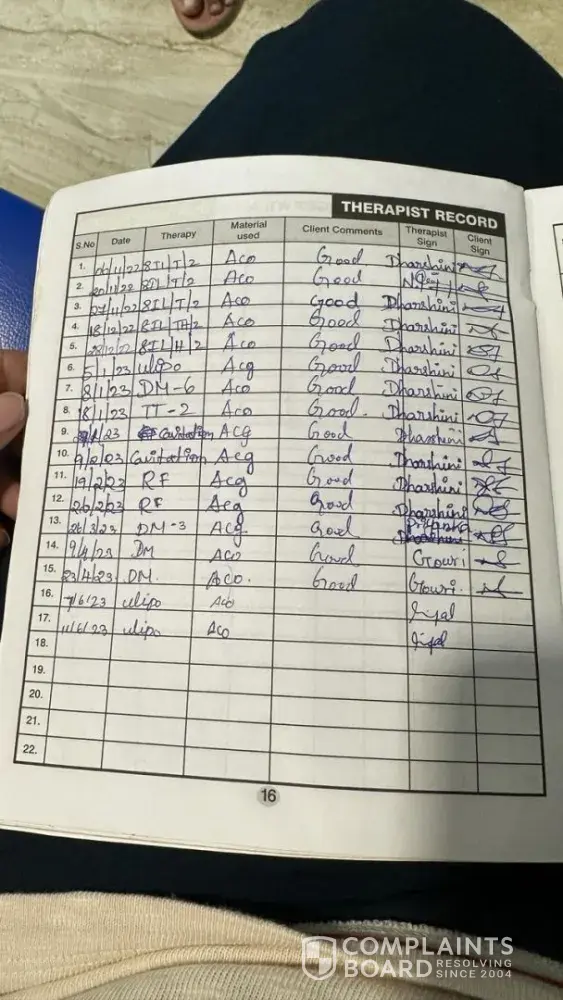 THERAPIST RECORD
S.No Date Therapy Material used Client Comments Therapist Sign Client Sign
1. Aco Good Dharshini
2. 20/11/22 Aco Good
3. 27/11/22 Aco Good Dharshini
4. 18/12/22 Aco Good Dharshini
5. Aco Good Dharshini
6. 5/1/23 ulipo Acg Good Dharshini
7. 8/1/23 DM-6 Aco Good Dharshini
8. 18/1/23 TT-2 Aco Good. Dharshini
9. Cavitation Acg Good Dharshini
10. 9/2/23 Cavitation Acg Good Dharshini
11. 19/2/23 RF Acg Good Dharshini
12. 26/2/23 RF Acg Good Dharshini
13. 26/3/23 DM-3 Acg Good
14. 9/4/23 DM Aco Good Gowri
15. 23/4/23 DM. Aco. Good Gowri.
16. 7/6/23 ulipo Aco
17. 11/6/23 ulipo Aco
18.
19.
20.
21.
22.
16
COMPLAINTS
BOARD RESOLVING
SINCE 2004